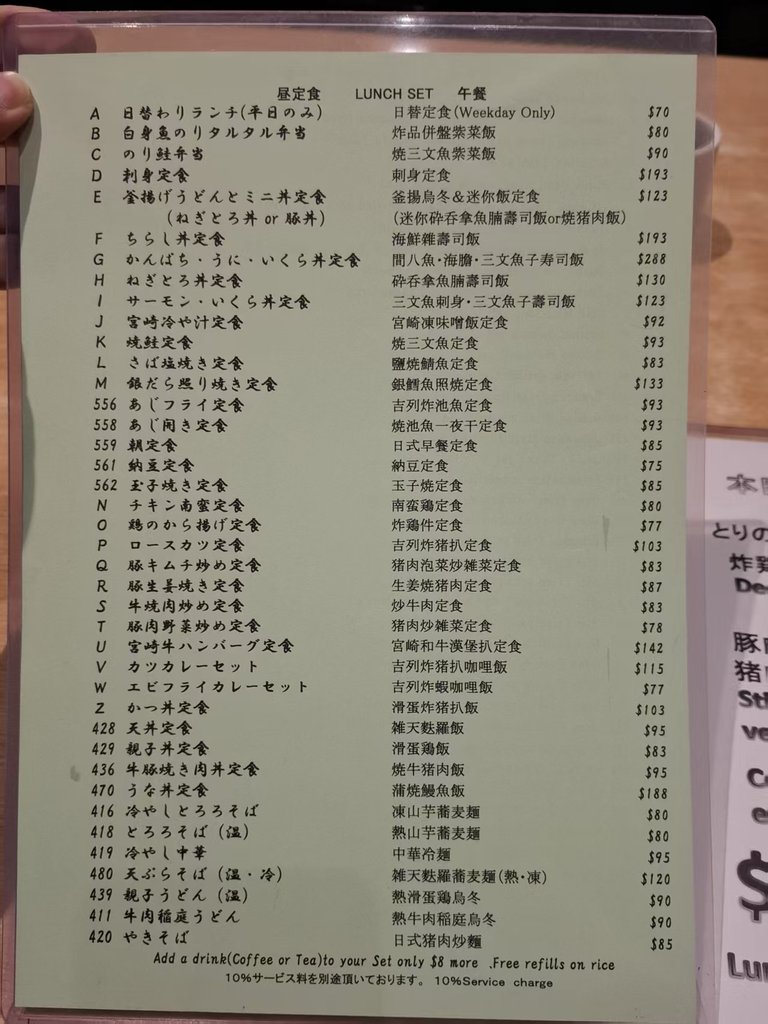 昼定食 LUNCH SET 午餐
A 日替わりランチ(平日のみ) 日替定食(Weekday Only) $70
B 白身魚のりタルタル弁当 炸品併盤紫菜飯 $80
C のり鮭弁当 焼三文魚紫菜飯 $90
D 刺身定食 刺身定食 $193
E 釜揚げうどんとミニ丼定食 釜揚烏冬&迷你飯定食 $123
(ねぎとろ丼 or 豚丼) (迷你砕吞拿魚腩壽司飯or焼猪肉飯)
F ちらし丼定食 海鮮雜壽司飯 $193
G かんぱち・うに・いくら丼定食 間八魚・海膽・三文魚子寿司飯 $288
H ねぎとろ丼定食 砕吞拿魚腩壽司飯 $130
I サーモン・いくら丼定食 三文魚刺身・三文魚子壽司飯 $123
J 宮崎冷や汁定食 宮崎凍味噌飯定食 $92
K 焼鮭定食 焼三文魚定食 $93
L さば塩焼き定食 鹽焼鯖魚定食 $83
M 銀だら照り焼き定食 銀鱈魚照焼定食 $133
556 あじフライ定食 吉列炸池魚定食 $93
558 あじ開き定食 焼池魚一夜干定食 $93
559 朝定食 日式早餐定食 $85
561 納豆定食 納豆定食 $75
562 玉子焼き定食 玉子焼定食 $85
N チキン南蛮定食 南蛮鶏定食 $80
O 鶏のから揚げ定食 炸鶏件定食 $77
P ロースカツ定食 吉列炸猪扒定食 $103
Q 豚キムチ炒め定食 猪肉泡菜炒雑菜定食 $83
R 豚生姜焼き定食 生姜焼猪肉定食 $87
S 牛焼肉炒め定食 炒牛肉定食 $83
T 豚肉野菜炒め定食 猪肉炒雑菜定食 $78
U 宮崎牛ハンバーグ定食 宮崎和牛漢堡扒定食 $142
V カツカレーセット 吉列炸猪扒咖哩飯 $115
W エビフライカレーセット 吉列炸蝦咖哩飯 $77
Z かつ丼定食 滑蛋炸猪扒飯 $103
428 天丼定食 雑天麩羅飯 $95
429 親子丼定食 滑蛋鶏飯 $83
436 牛豚焼き肉丼定食 焼牛猪肉飯 $95
470 うな丼定食 蒲焼鰻魚飯 $188
416 冷やしとろろそば 凍山芋蕎麦麺 $80
418 とろろそば(温) 熱山芋蕎麦麺 $80
419 冷やし中華 中華冷麺 $95
480 天ぷらそば(温・冷) 雑天麩羅蕎麦麺(熱・凍) $120
439 親子うどん(温) 熱滑蛋鶏烏冬 $90
411 牛肉稲庭うどん 熱牛肉稲庭烏冬 $90
420 やきそば 日式猪肉炒麵 $85
Add a drink(Coffee or Tea)to your Set only $8 more .Free refills on rice
10%サービス料を別途頂いております。 10%Service charge
とりの
豚
猪
$